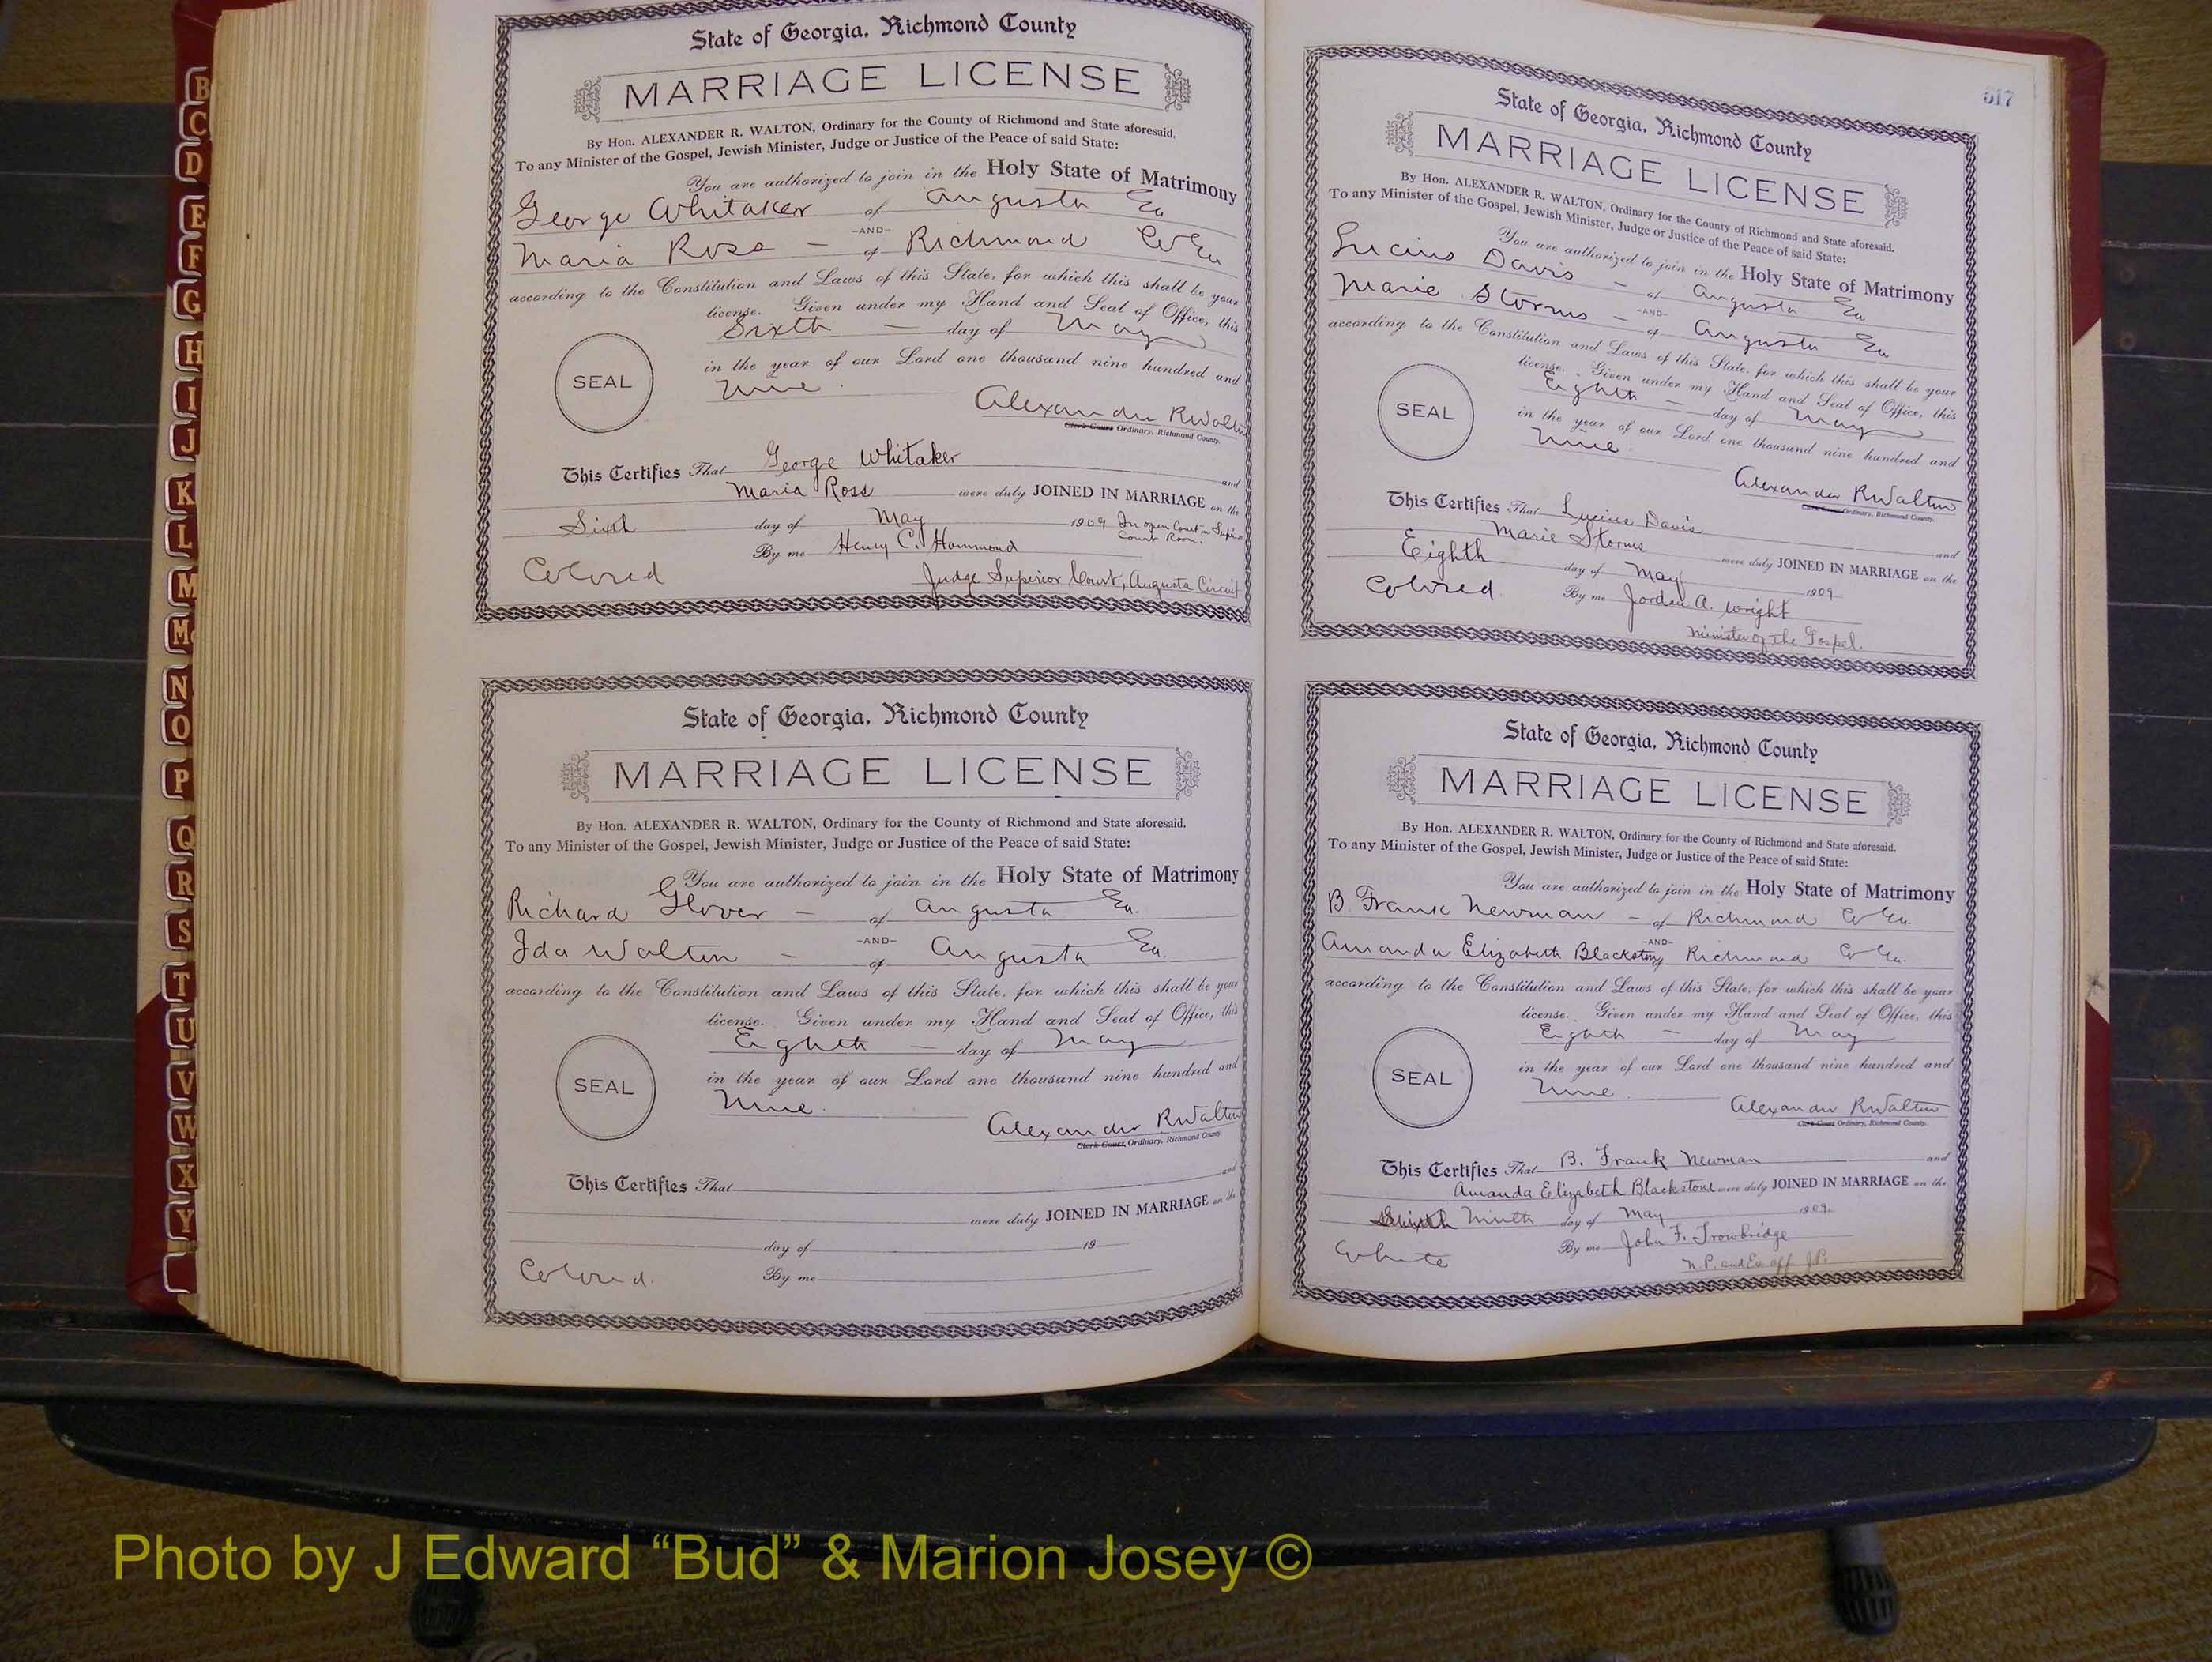 B
C
D
E
F
G
H
I
J
K
L
M
Mc
N
O
P
Q
R
S
T
U
V
W
X
Y
State of Georgia, Richmond County
MARRIAGE LICENSE
By Hon. ALEXANDER R. WALTON, Ordinary for the County of Richmond and State aforesaid.
To any Minister of the Gospel, Jewish Minister, Judge or Justice of the Peace of said State:
You are authorized to join in the Holy State of Matrimony
George Whitaker of Augusta Ga
-AND-
Maria Ross - of Richmond Co Ga
according to the Constitution and Laws of this State, for which this shall be your
license. Given under my Hand and Seal of Office, this
Sixth - day of May
in the year of our Lord one thousand nine hundred and
SEAL
Nine.
Alexander R Walton
Clerk Court Ordinary, Richmond County.
This Certifies That George Whitaker and
Maria Ross were duly JOINED IN MARRIAGE on the
Sixth day of May 1909 In open Court in Superior
Court Room.
By me Henry C. Hammond
Colored
Judge Superior Court, Augusta Circuit
State of Georgia, Richmond County
MARRIAGE LICENSE
By Hon. ALEXANDER R. WALTON, Ordinary for the County of Richmond and State aforesaid.
To any Minister of the Gospel, Jewish Minister, Judge or Justice of the Peace of said State:
You are authorized to join in the Holy State of Matrimony
Richard Glover - of Augusta Ga.
-AND-
Ida Walton - of Augusta Ga.
according to the Constitution and Laws of this State, for which this shall be your
license. Given under my Hand and Seal of Office, this
Eighth - day of May
in the year of our Lord one thousand nine hundred and
SEAL
Nine.
Alexander R Walton
Clerk Court, Ordinary, Richmond County
This Certifies That and
were duly JOINED IN MARRIAGE on the
day of 19
Colored.
By me
517
State of Georgia, Richmond County
MARRIAGE LICENSE
By Hon. ALEXANDER R. WALTON, Ordinary for the County of Richmond and State aforesaid.
To any Minister of the Gospel, Jewish Minister, Judge or Justice of the Peace of said State:
You are authorized to join in the Holy State of Matrimony
Lucius Davis - of Augusta Ga
-AND-
Marie Storms - of Augusta Ga
according to the Constitution and Laws of this State, for which this shall be your
license. Given under my Hand and Seal of Office, this
Eighth - day of May
in the year of our Lord one thousand nine hundred and
SEAL
Nine.
Alexander R Walton
Clerk Court Ordinary, Richmond County.
This Certifies That Lucius Davis and
Marie Storms were duly JOINED IN MARRIAGE on the
Eighth day of May 1909
Colored
By me Jordan A. Wright
Minister of the Gospel.
State of Georgia, Richmond County
MARRIAGE LICENSE
By Hon. ALEXANDER R. WALTON, Ordinary for the County of Richmond and State aforesaid.
To any Minister of the Gospel, Jewish Minister, Judge or Justice of the Peace of said State:
You are authorized to join in the Holy State of Matrimony
B. Frank Newman - of Richmond Co Ga.
-AND-
Amanda Elizabeth Blackstone of Richmond Co Ga.
according to the Constitution and Laws of this State, for which this shall be your
license. Given under my Hand and Seal of Office, this
Eighth - day of May
in the year of our Lord one thousand nine hundred and
SEAL
Nine.
Alexander R Walton
Clerk Court Ordinary, Richmond County.
This Certifies That B. Frank Newman and
Amanda Elizabeth Blackstone were duly JOINED IN MARRIAGE on the
Ninth day of May 1909
White
By me John F. Trowbridge
N.P. and Ex off J.P.
Photo by J Edward “Bud” & Marion Josey ©